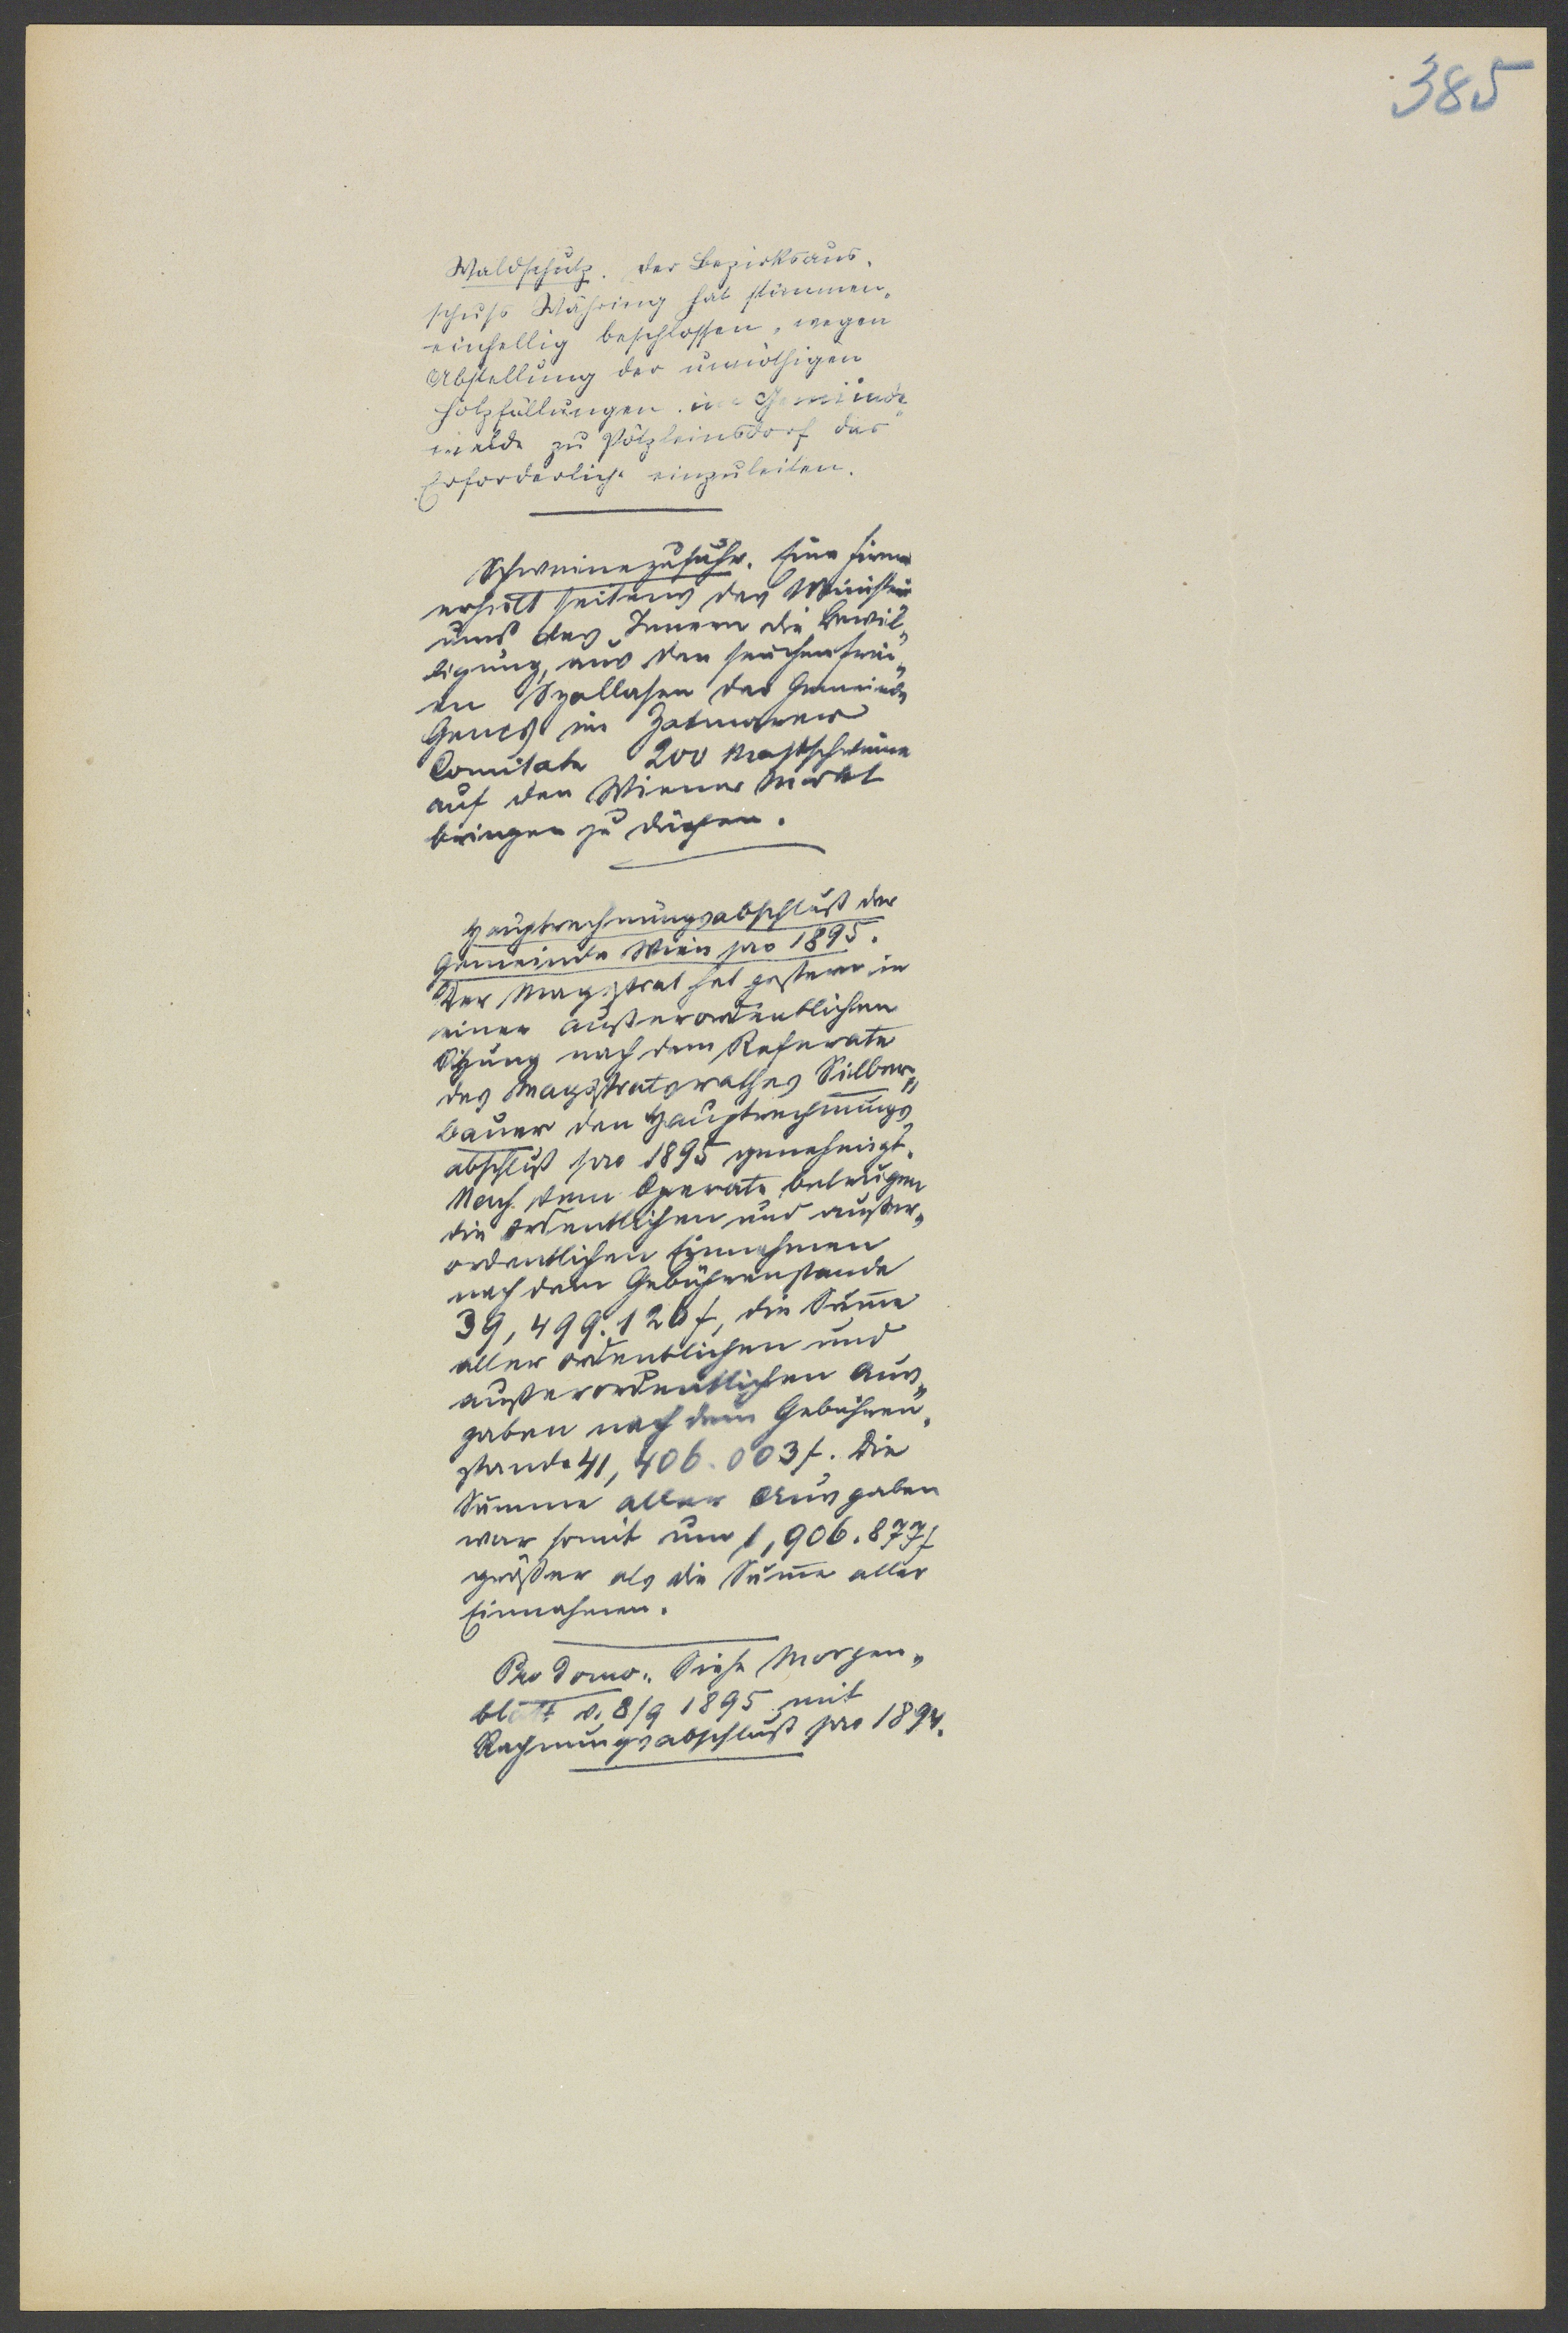 385
Waldschutz. Der Bezirksaus-
schuss Währing hat stimmen-
einhellig beschlossen, wegen
Abstellung der unnöthigen
Holzfällungen im Gemeinde-
walde zu Pötzleinsdorf das
Erforderliche einzuleiten.
Schweinezufuhr. Eine Firma
erhielt seitens des Ministeri-
ums des Innern die Bewil-
ligung, aus den seuchenfrei-
en Szallasen der Gemeinde
Gencs im Zatmarer
Comitate 200 Mastschweine
auf den Wiener Markt
bringen zu dürfen.
Hauptrechnungsabschluß der
Gemeinde Wien pro 1895.
Der Magistrat hat gestern in
einer außerordentlichen
Sitzung nach dem Referate
des Magistratsrathes Silber-
bauer den Hauptrechnungs-
abschluß pro 1895 genehmigt.
Nach dem Operate betrugen
die ordentlichen und außer-
ordentlichen Einnahmen
nach dem Gebührenstande
39,499.126 f, die Sum̅e
aller ordentlichen und
außerordentlichen Aus-
gaben nach dem Gebühren-
stande 41,406.003 f. Die
Summe aller Ausgaben
war somit um 1,906.877 f
größer als die Sum̅e aller
Einnahmen.
Pro domo. Siehe Morgen-
blatt v. 8/9 1895 mit
Rechnungsabschluß pro 1894.